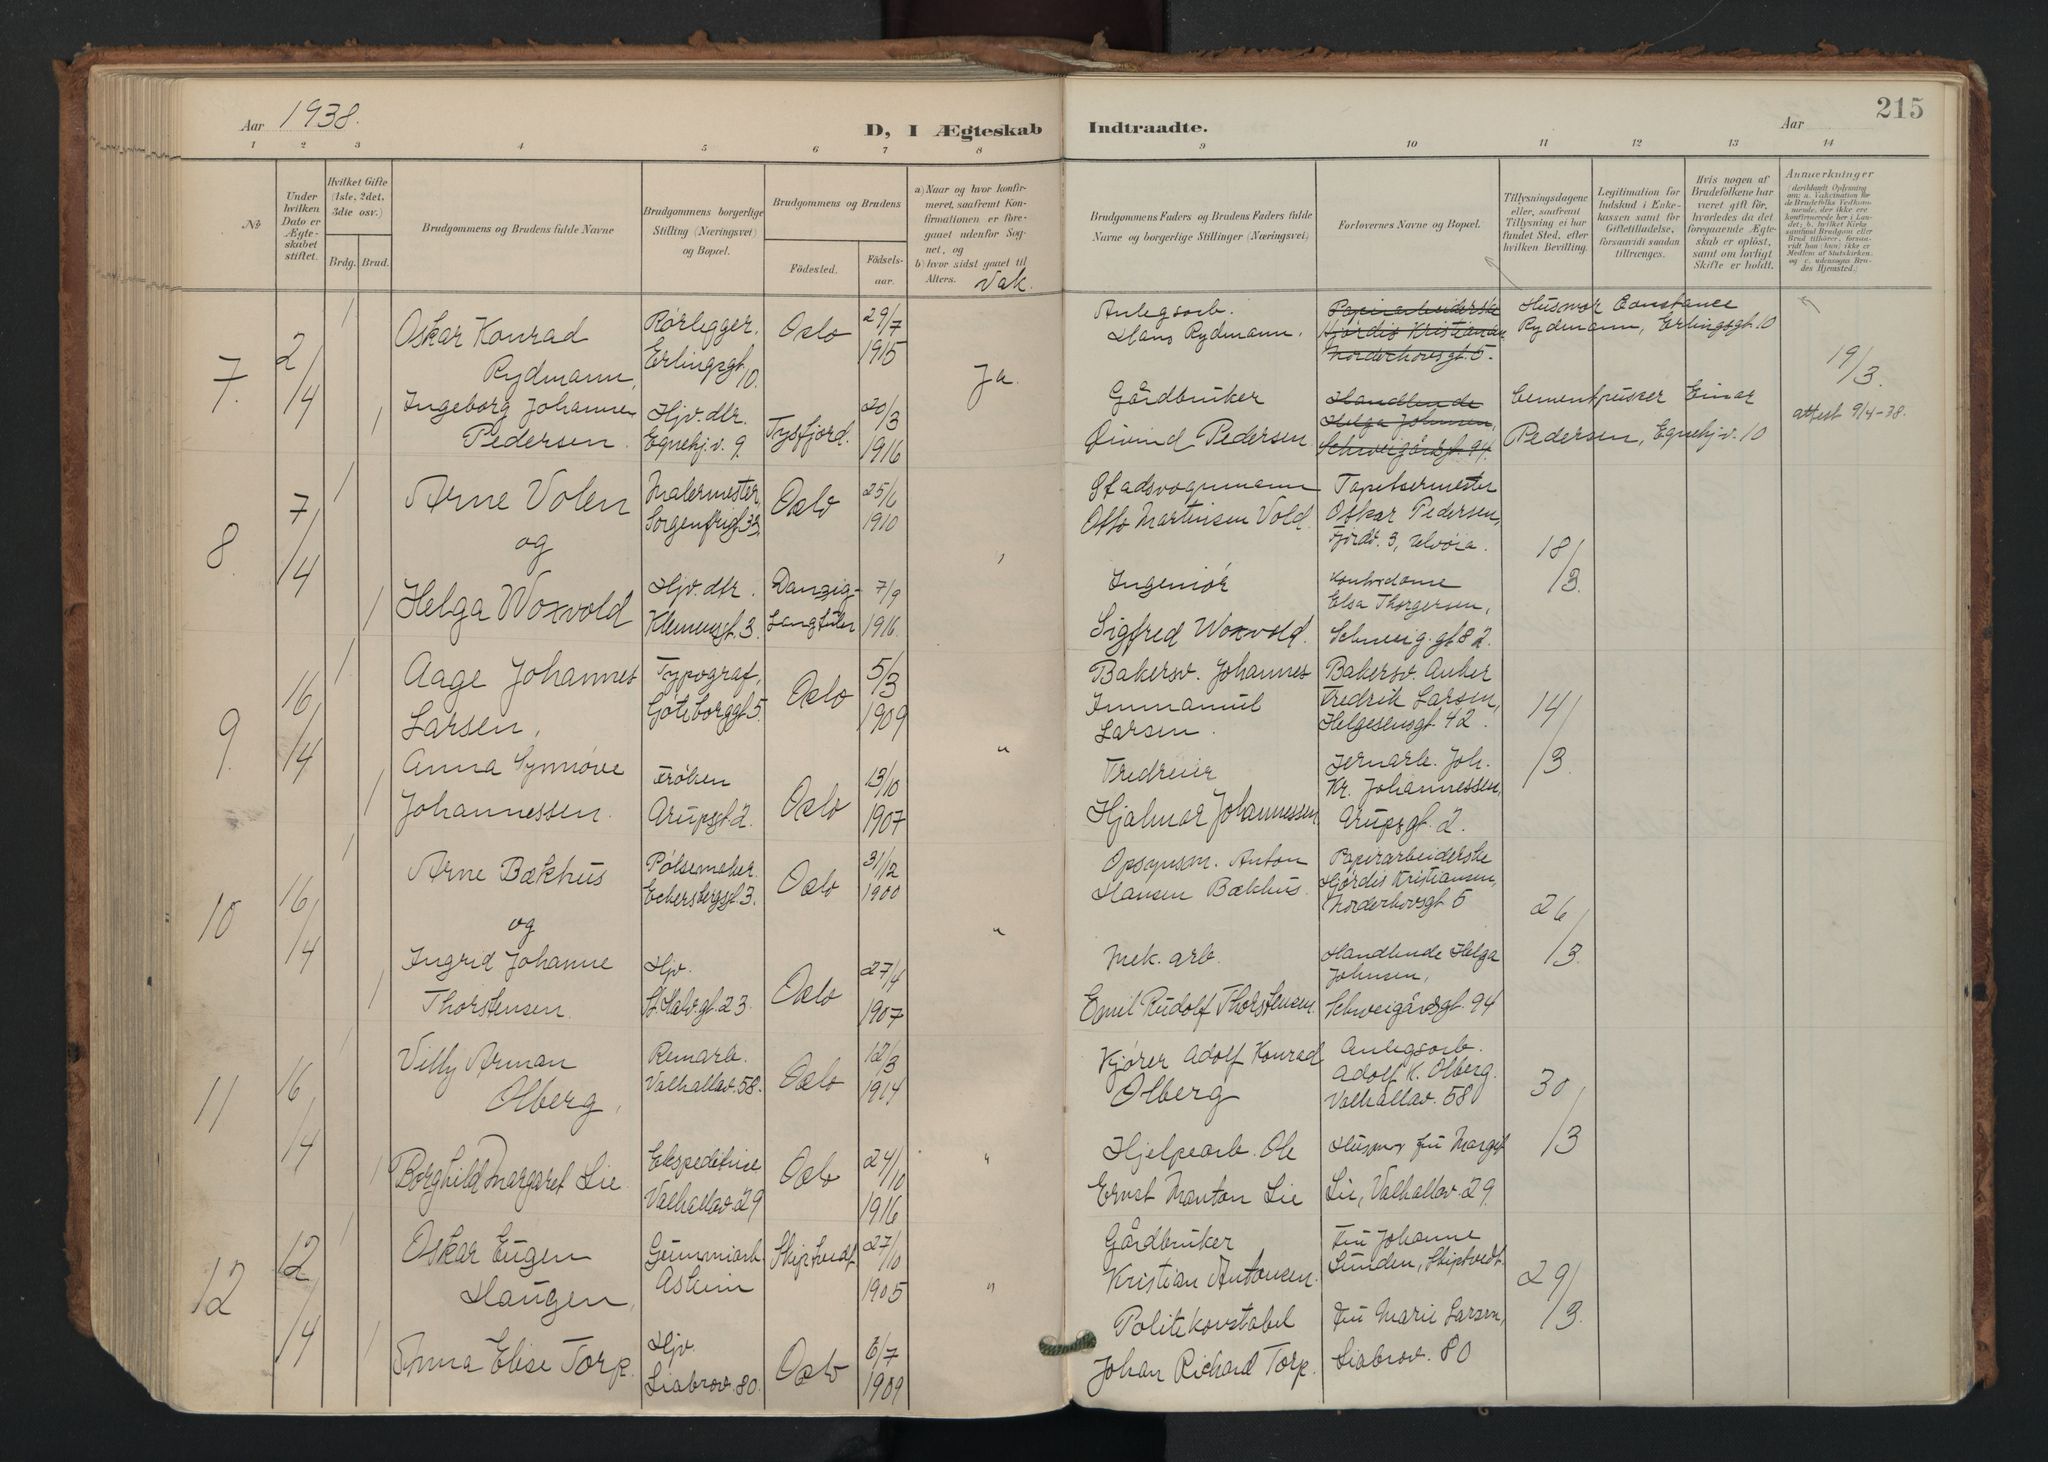 Aar 1938.
D, I Ægteskab Indtraadte.
Aar
215
1 2 3 4 5 6 7 8 9 10 11 12 13 14
No
Under hvilken Dato er Ægteskabet stiftet.
Hvilket Gifte (1ste, 2det, 3die osv.)
Brdg. Brud.
Brudgommens og Brudens fulde Navne
Brudgommens borgerlige Stilling (Næringsvei) og Bopæl.
Brudgommens og Brudens
Fødested.
Fødselsaar.
a) Naar og hvor konfirmeret, saafremt Konfirmationen er foregaaet udenfor Sognet, og
b) hvor sidst gaaet til Alters.
Vak.
Brudgommens Faders og Brudens Faders fulde Navne og borgerlige Stillinger (Næringsvei)
Forlovernes Navne og Bopæl.
Tillysningsdagene eller, saafremt Tillysning ei har fundet Sted, efter hvilken Bevilling.
Legitimation for Indskud i Enkekassen samt for Giftetilladelse, forsaavidt saadan tiltrænges.
Hvis nogen af Brudefolkene har været gift før, hvorledes da det foregaaende Ægteskab er opløst, samt om lovligt Skifte er holdt.
Anmærkninger
7.
2/4
1
Oskar Konrad
Rydmann,
Rørlegger.
Erlingsgt. 10.
Oslo
29/7
1915
Ja.
Anlegsarb.
Hans Rydmann.
Papirarbeiderske
Hjørdis Kristiansen
Norderhovsgt. 5.
Husmor Constance
Rydmann, Erlingsgt. 10
19/3.
1
Ingeborg Johanne
Pedersen.
Hjv. dtr.
Egnehj.v. 9.
Tysfjord.
20/3
1916
Gårdbruker
Øivind Pedersen.
Handlende
Helga Johnsen,
Schweigårdsgt. 94.
Cementpusser Einar
Pedersen, Egnehj.v. 10
attest 9/4-38.
8.
7/4
1
Arne Volen
Malermester
Sorgenfrigt. 33.
Oslo
25/6
1910
Stadsvognmann
Otto Martinsen Vold.
Tapetsermester
Oskar Pedersen,
Fjordv. 3, Ulvøia.
18/3.
og
1
Helga Woxvold
Hjv. dtr.
Klemensgt. 3.
Danzig-
7/9
1916.
Ingeniør
Sigfred Woxvold.
Kontordame
Elsa Thorgersen,
Schweig.gt 82.
9.
16/4
1
Aage Johannes
Larsen,
Typograf,
Gøteborggt. 5.
Oslo
5/3
1909
"
Bakersv. Johannes
Immanuel
Larsen.
Bakersv. Anker
Fredrik Larsen,
Helgesensgt. 42.
14/3.
1
Anna Synnøve
Johannessen.
Frøken
Arupsgt. 2.
Oslo
13/10
1907
Tredreier
Hjalmar Johannessen
Jernarb. Joh.
Kr. Johannessen,
Arupsgt. 2.
10
16/4
1
Arne Bækhus
Pølsemaker.
Eckersbergsgt. 3.
Oslo
31/12
1900
"
Opsynsm. Anton
Hansen Bækhus.
Papirarbeiderske
Hjørdis Kristiansen,
Norderhovsgt 5
26/3.
og
1
Ingrid Johanne
Thorstensen.
Hjv.
St. Halv.gt. 23.
Oslo
27/4
1907
Mek. arb.
Emil Rudolf Thorstensen.
Handlende Helga
Johnsen,
Schweigårdsgt. 94
11
16/4
1
Villy Arman
Olberg,
Remarb.
Valhallav. 58.
Oslo
12/3
1914
"
Kjører Adolf Konrad
Olberg
Anlegsarb.
Adolf K. Olberg.
Valhallav. 58
30/3
1
Borghild Margaret Lie.
Ekspeditrice
Valhallav. 29
Oslo
24/10
1916
Hjelpearb. Ole
Ernst Manton Lie
Husmor fru Margit
Lie, Valhallav. 29.
12
12/4
1
Oskar Eugen
Haugen,
Gummiarb.
Askim
Skiptvedt
27/10
1905
"
Gårdbruker
Kristian Antonsen.
Fru Johanne
Lunden, Skiptvedt.
29/3.
1
Anna Elise Torp.
Hjv.
Liabrov. 80.
Oslo
6/7
1909
Politikonstabel
Johan Richard Torp.
Fru Marie Larsen,
Liabrov. 80